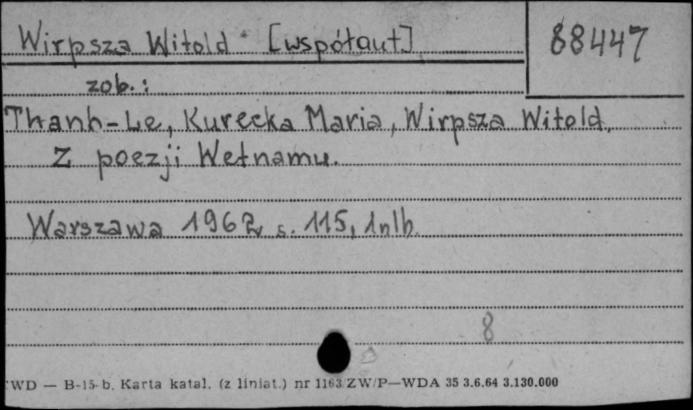 Wirpsza Witold [współaut]
88447
zob.:
Thanh-Le, Kurecka Maria, Wirpsza Witold.
Z poezji Wetnamu.
Warszawa 1962 s. 115, 1nlb.
8
WD — B-15-b. Karta katal. (z liniat.) nr 1163/ZW/P—WDA 35 3.6.64 3.130.000